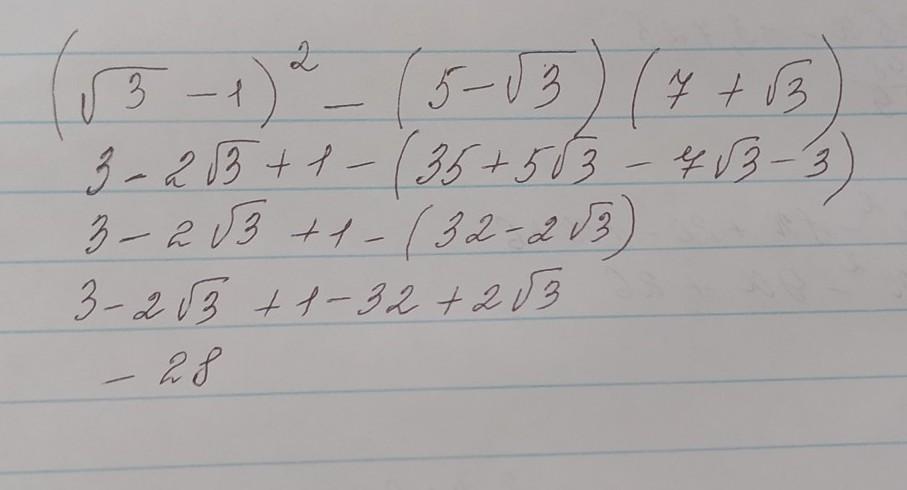 (√3 - 1)² - (5 - √3)(7 + √3)
3 - 2√3 + 1 - (35 + 5√3 - 7√3 - 3)
3 - 2√3 + 1 - (32 - 2√3)
3 - 2√3 + 1 - 32 + 2√3
- 28